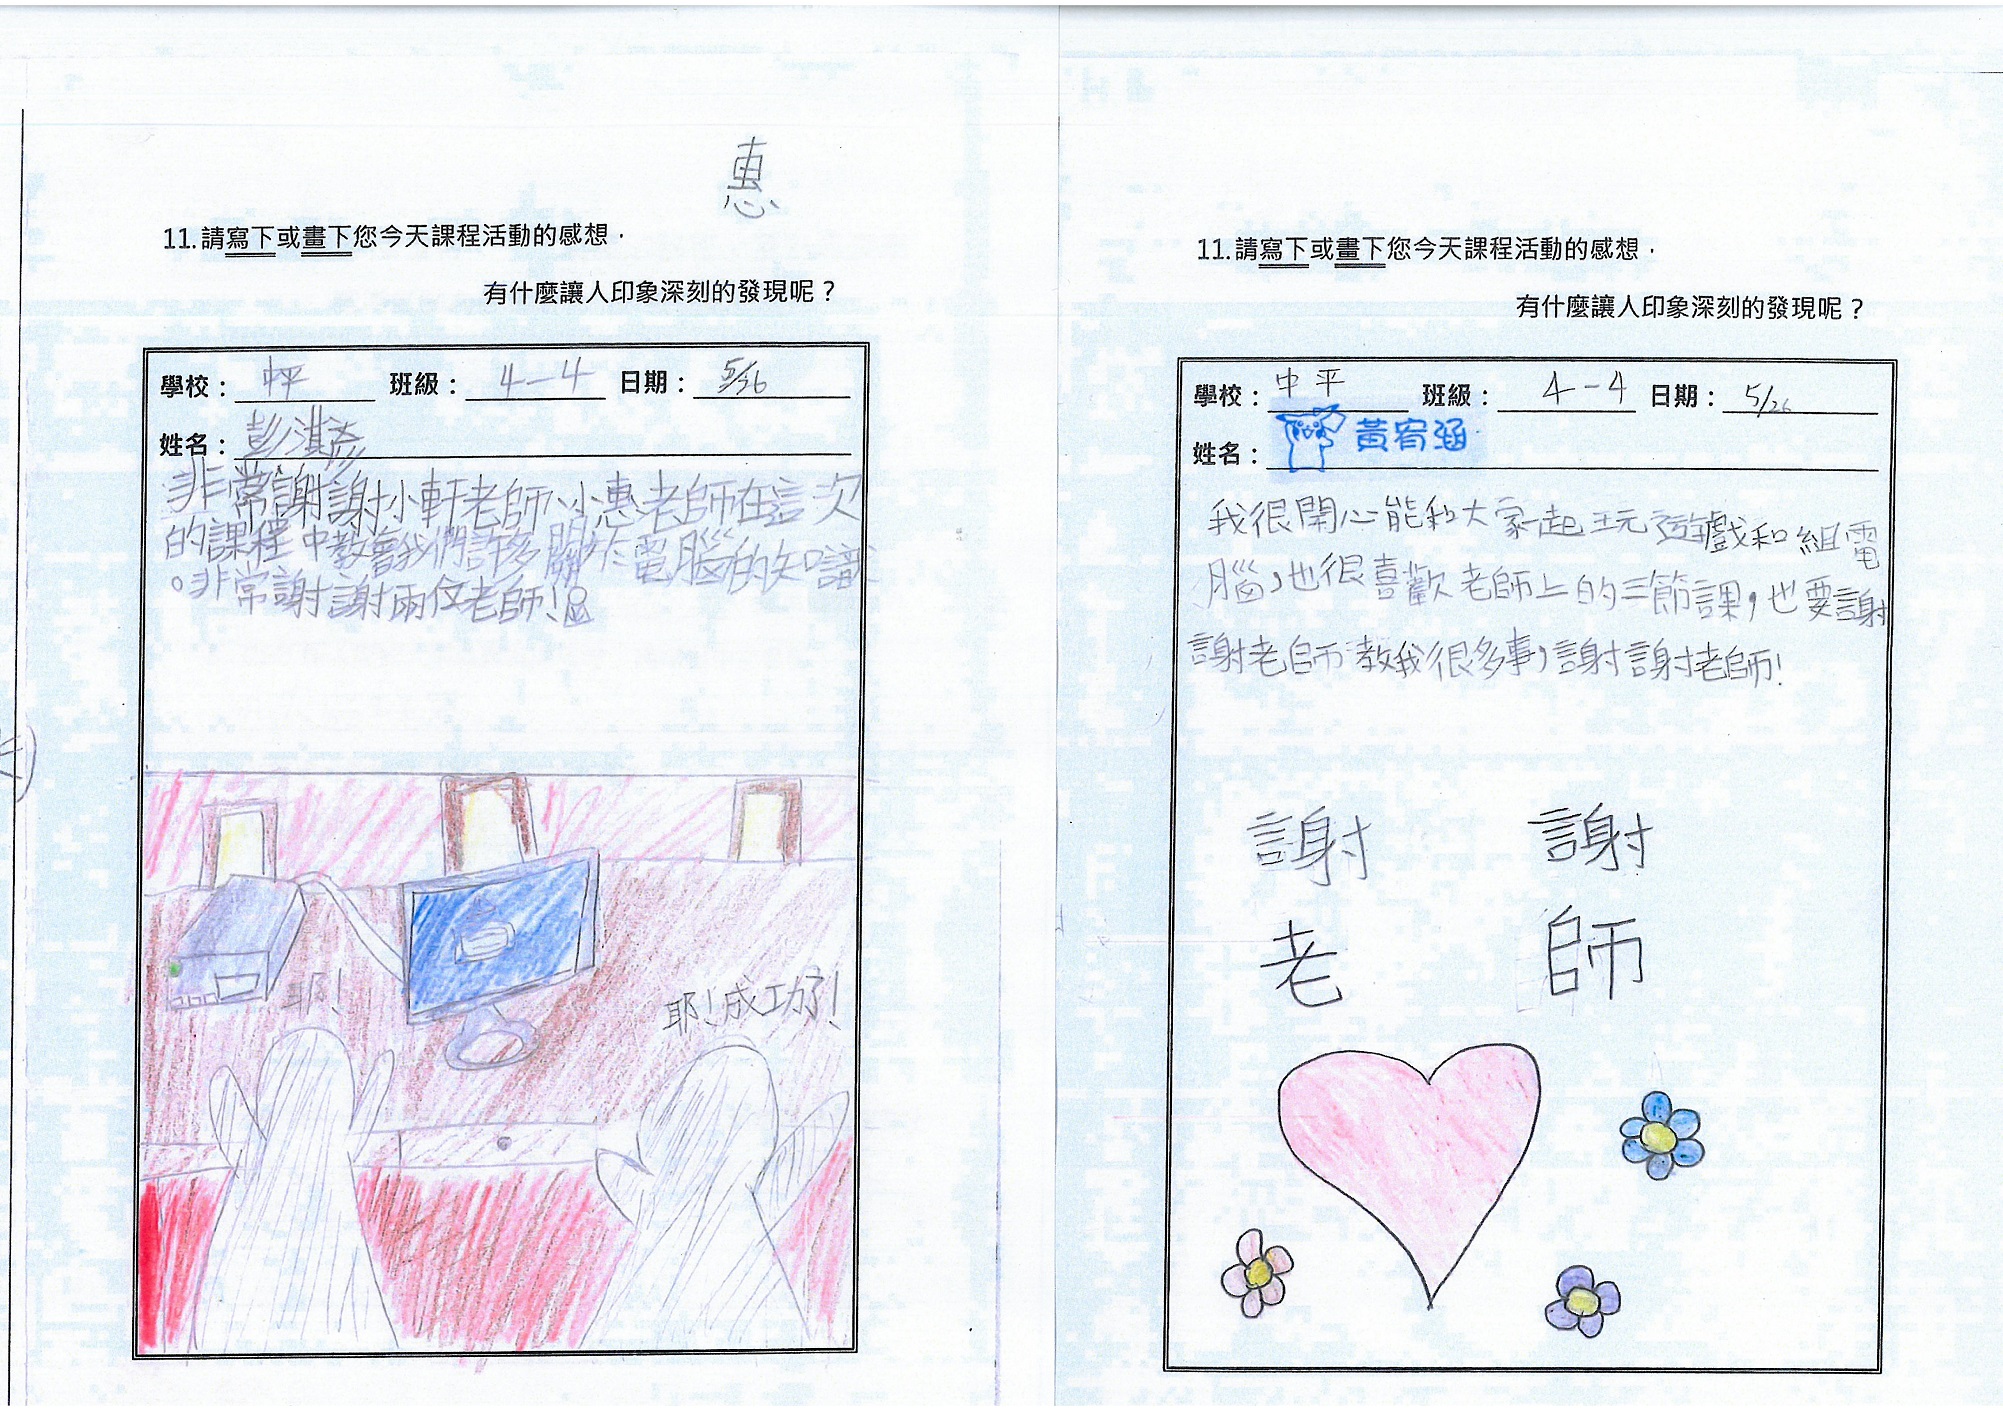 惠
11.請寫下或畫下您今天課程活動的感想，
有什麼讓人印象深刻的發現呢？
學校：中平 班級：4-4 日期：5/26
姓名：彭淇
非常謝謝小軒老師、小惠老師在這次
的課程中教會我們許多關於電腦的知識
。非常謝謝兩位老師！
耶！
耶！成功了！
11.請寫下或畫下您今天課程活動的感想，
有什麼讓人印象深刻的發現呢？
學校：中平 班級：4-4 日期：5/26
姓名：黃宥涵
我很開心能和大家一起玩遊戲和組電
腦，也很喜歡老師上的三節課，也要謝
謝老師教我很多事，謝謝老師！
謝 謝
老 師